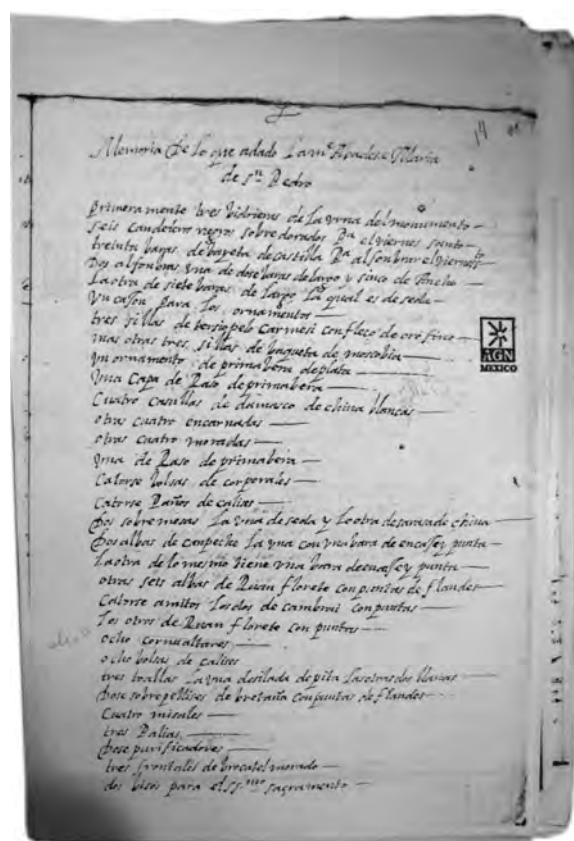 14
Memoria de lo que a dado La me Abadesa Maria
de Sn Pedro
Primeramente tres bidrieras de La Vrna del monumento
Seis candeleros negros sobredorados Pa el viernes santo
treinta baras de bayeta de castilla Pa alfombrar el viernes sto
Dos alfonbras Vna de dose baras de largo y sinco de Ancho
La otra de siete baras de largo La qual es de seda
Vn cajon para Los ornamentos
tres sillas de tersiopelo carmesi con fleco de oro fino
mas otras tres sillas de baqueta de moscobia
Vn ornamento de primabera de plata
Vna Capa de Raso de primabera
Cuatro casullas de damasco de china blancas
otras cuatro encarnadas
otras cuatro moradas
Vna de Raso de primabera
Catorse bolsas de corporales
Catorse Paños de calias
Dos sobremesas La Vna de seda y La otra de sarasa de china
Dos albas de canpeche La Vna con Vna bara de encaje y punta
La otra de lo mesmo tiene Vna bara de encaje y punta
otras seis albas de Ruan florete con puntas de flandes
Catorse amitos Los dos de cambrai con puntas
Los otros de Ruan florete con puntas
ocho cornualtares
ocho bolsas de calises
tres toallas La Vna desilada de pita Las otras dos blancas
Dose sobrepellises de bretaña con puntas de flandes
Cuatro misales
tres Palias
Dose purificadores
tres frontales de brocatel morado
dos bisos para el SSmo sacramento
AGN
MEXICO